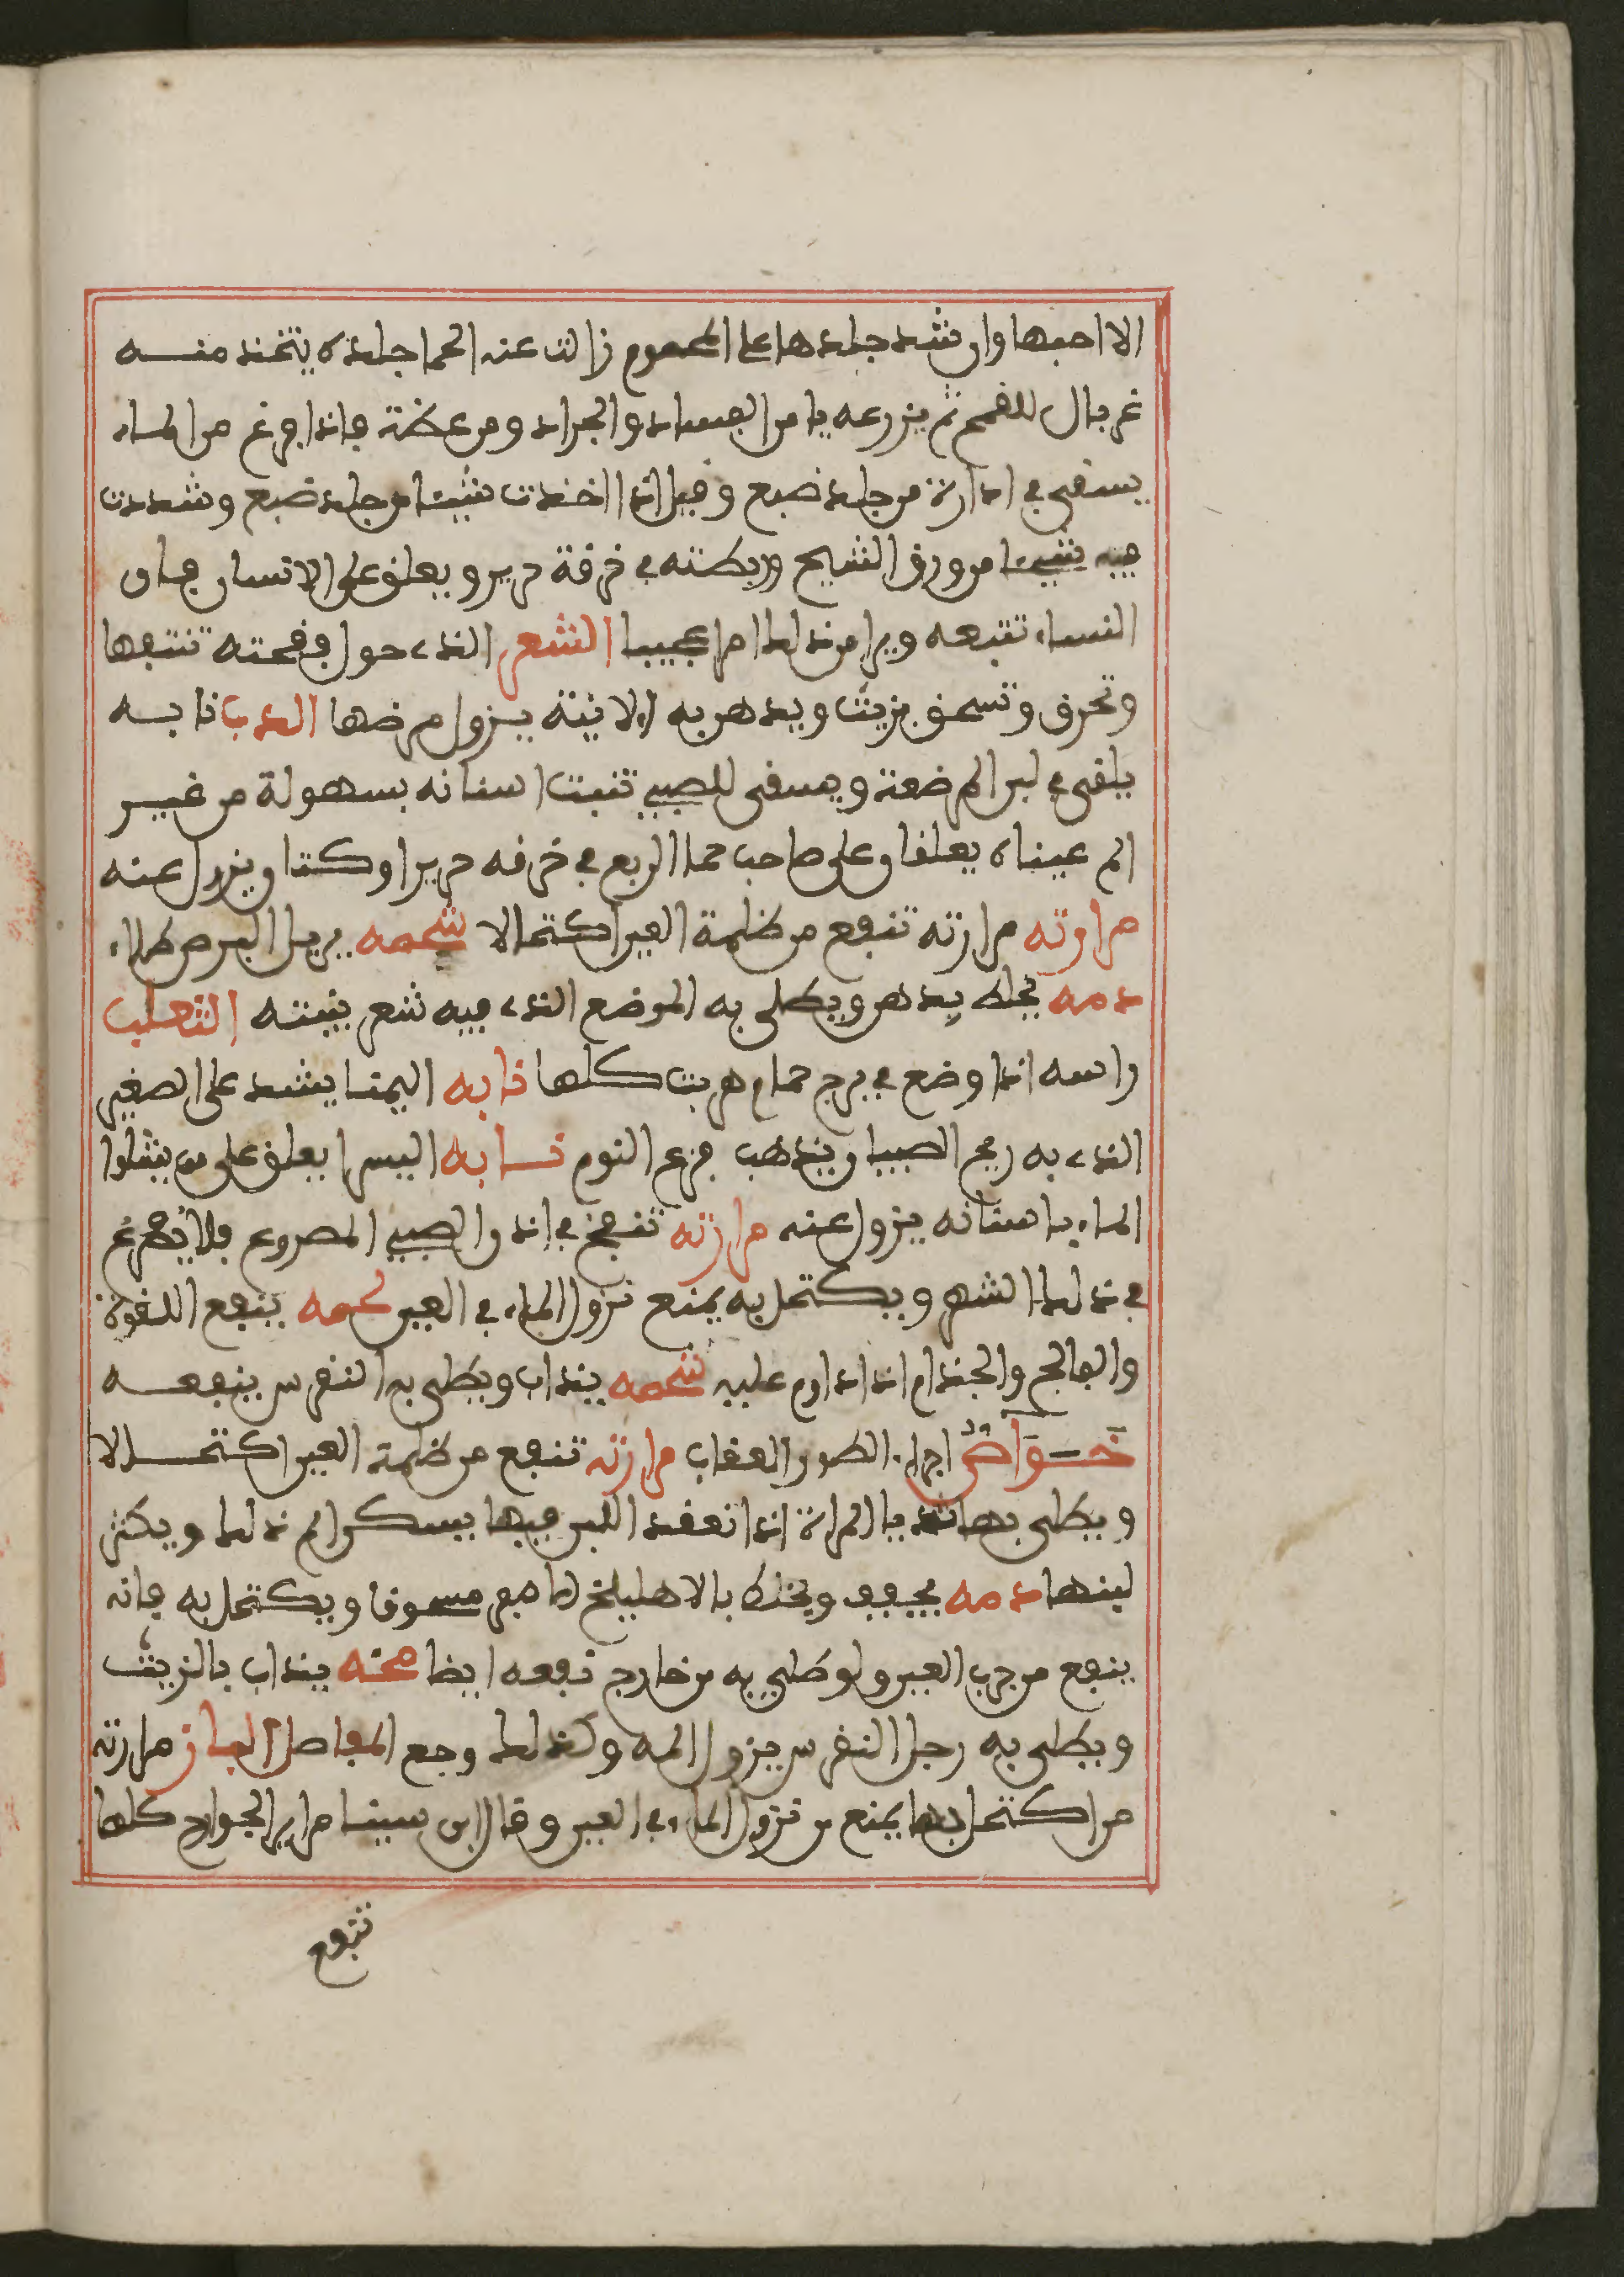 الا احبها وان شد جلدها على المحموم زالت عنه الحما جلده يتخذ منـــه
غربال للقمح ثم يزرعه يامن الفساد والجراد ومن عظة فاذا فرغ من الماء
يسقى في ادارة من جلد ضبع وقيل اذا اخذت شيئا من جلد ضبع وشددت
فيه شيئا من ورق الشيح وربطته في خرقة حرير ويعلق على الانسان فان
النساء تتبعه ويرا من ذلك امرا عجيبا الشعر الذي حول فقحته تنتفها
وتحرق وتسحق بزيت ويدهن به الابنة يزول مرضها الدب نابـــه
يلقى في لبن المرضعة ويسقى للصبي تنبت اسنانه بسهولة من غيـــر
الم عيناه يعلقان على صاحب حما الربع في خرقه حرير او كتان ويزول عنه
مرارته مرارته تنفع من ظلمة العين اكتحالا شحمه يزيل البرص طلاء
دمه يخلط بدهن ويطلى به الموضع الذي فيه شعر ينبته الثعلب
راسه اذا وضع في برج حمام هربت كلها نابه اليمنا يشد على الصغير
الذي به ريح الصبيان يذهب فزع النوم نـــابه اليسرا يعلق على من يشلوا
الماء باسنانه يزول عنه مرارته تنفخ في اذن الصبي المصروع فلا يصرع
في ذلك الشهر ويكتحل به يمنع نزول الماء في العين لحمه ينفع اللقوة
والفالج والجذام اذا داوم عليه شحمه يذاب ويطلى به النقرس ينفعـــه
خـــواص اجزاء الطيور العقاب مرارته تنفع من ظلمة العين اكتحـــالا
ويطلى بها ثديا المراة اذا انعقد اللبن فيها يسكن الم ذلك ويكثر
لبنها دمه يجفف ويخلط بالاهليلج الاصفر مسحوقا ويكتحل به فانه
ينفع من جرب العين ولو طلي به من خارج نفعه ايضا مخه يذاب بالزيت
ويطلى به رجل النقرس يزول المه وكذلك وجع المفاصل الباز مرارته
من اكتحل بها يمنع من نزول الماء في العين وقال ابن سينا مراير الجوارح كلها
تنفع